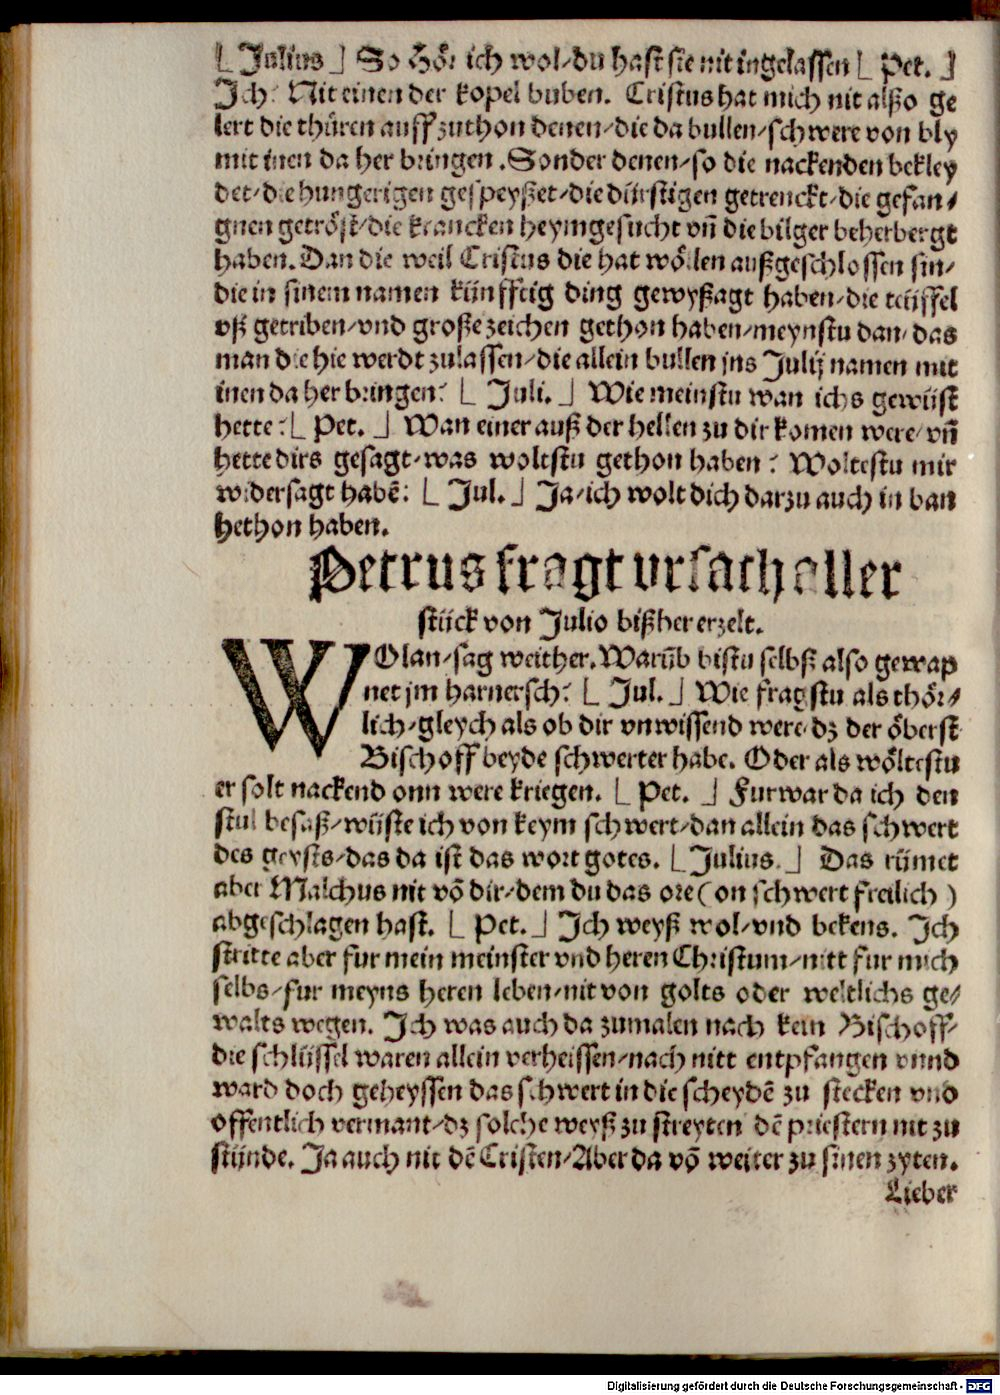 [ Julius ] So Hoͤr ich wol/du hast sie nit ingelassen [ Pet. ]
Ich? Nit einen der kopel buben. Cristus hat mich nit alßo ge
lert die thuͤren auff zuthon denen/die da bullen/schwere von bly
mit inen da her bringen. Sonder denen/so die nackenden bekley
det/die hungerigen gespeyßet/die dürstigen getrenckt/die gefan/
gnen getroͤst/die krancken heymgesucht vn̄ die bilger beherbergt
haben. Dan die weil Cristus die hat woͤllen außgeschlossen sin/
die in sinem namen künfftig ding gewyßagt haben/die teüffel
vß getriben/vnd große zeichen gethon haben/meynstu dan/das
man die hie werdt zulassen/die allein bullen jns Julij namen mit
inen da her bringen? [ Juli. ] Wie meinstu wan ichs gewüst
hette? [ Pet. ] Wan einer auß der hellen zu dir komen were/vn̄
hette dirs gesagt/was woltstu gethon haben? Woltestu mir
widersagt habē? [ Jul. ] Ja/ich wolt dich darzu auch in ban
gethon haben.
Petrus fragt vrsach aller
stück von Julio bißher erzelt.
WOlan/sag weither. Warūb bistu selbß also gewap
net jm harnersch? [ Jul. ] Wie fragstu als thoͤr/
lich/gleych als ob dir vnwissend were dz der oͤberst
Bischoff beyde schwerter habe. Oder als woͤltestu
er solt nackend onn were kriegen. [ Pet. ] Furwar da ich den
stul besaß/wüste ich von keym schwert/dan allein das schwert
des geysts/das da ist das wort gotes. [ Julius. ] Das rümet
aber Malchus nit vō dir/dem du das ore (on schwert freilich)
abgeschlagen hast. [ Pet. ] Ich weyß wol/vnd bekens. Ich
stritte aber fur mein meinster vnd heren Christum/nitt fur mich
selbs/fur meyns heren leben/nit von golts oder weltlichs ge/
walts wegen. Ich was auch da zumalen nach kein Bischoff/
die schlüssel waren allein verheissen/nach nitt entpfangen vnnd
ward doch geheyssen das schwert in die scheydē zu stecken vnd
offentlich vermant/dz solche weyß zu streyten dē priestern nit zu
stünde. Ja auch nit dē Cristen/Aber da vō weiter zu sinen zyten.
Lieber
Digitalisierung gefördert durch die Deutsche Forschungsgemeinschaft - DFG